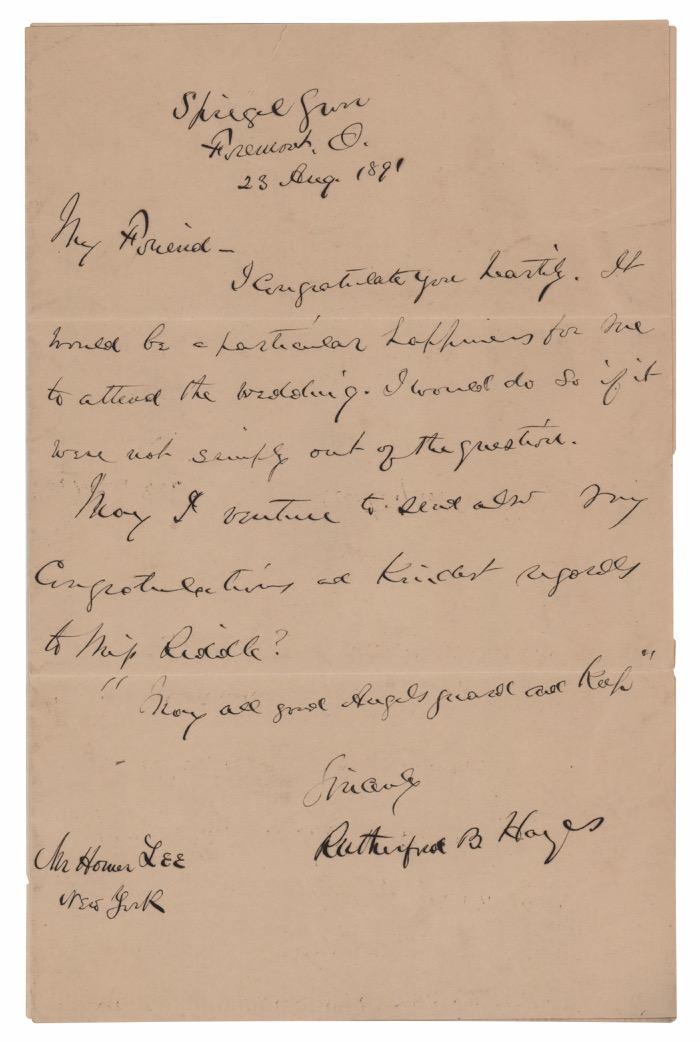 Spiegel Grove
Fremont, O.
23 Aug 1891
My Friend -
I congratulate you heartily. It
would be a particular happiness for me
to attend the wedding. I would do so if it
were not simply out of the question.
May I venture to send also my
Congratulations and Kindest regards
to Miss Riddle?
"May all good Angels guard and Keep"
Sincerely
Rutherford B Hayes
Mr Homer Lee
New York